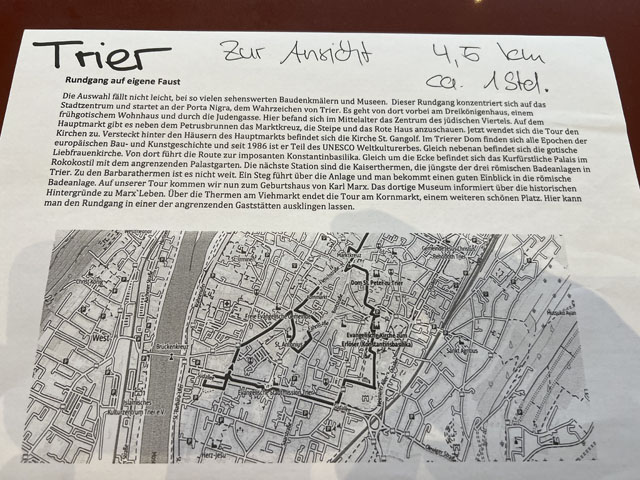 Trier
Zur Ansicht
4,5 km
ca. 1 Std.
Rundgang auf eigene Faust
Die Auswahl fällt nicht leicht, bei so vielen sehenswerten Baudenkmälern und Museen. Dieser Rundgang konzentriert sich auf das
Stadtzentrum und startet an der Porta Nigra, dem Wahrzeichen von Trier. Es geht von dort vorbei am Dreikönigenhaus, einem
frühgotischem Wohnhaus und durch die Judengasse. Hier befand sich im Mittelalter das Zentrum des jüdischen Viertels. Auf dem
Hauptmarkt gibt es neben dem Petrusbrunnen das Marktkreuz, die Steipe und das Rote Haus anzuschauen. Jetzt wendet sich die Tour den
Kirchen zu. Versteckt hinter den Häusern des Hauptmarkts befindet sich die Kirche St. Gangolf. Im Trierer Dom finden sich alle Epochen der
europäischen Bau- und Kunstgeschichte und seit 1986 ist er Teil des UNESCO Weltkulturerbes. Gleich nebenan befindet sich die gotische
Liebfrauenkirche. Von dort führt die Route zur imposanten Konstantinbasilika. Gleich um die Ecke befindet sich das Kurfürstliche Palais im
Rokokostil mit dem angrenzenden Palastgarten. Die nächste Station sind die Kaiserthermen, die jüngste der drei römischen Badeanlagen in
Trier. Zu den Barbarathermen ist es nicht weit. Ein Steg führt über die Anlage und man bekommt einen guten Einblick in die römische
Badeanlage. Auf unserer Tour kommen wir nun zum Geburtshaus von Karl Marx. Das dortige Museum informiert über die historischen
Hintergründe zu Marx'Leben. Über die Thermen am Viehmarkt endet die Tour am Kornmarkt, einem weiteren schönen Platz. Hier kann
man den Rundgang in einer der angrenzenden Gaststätten ausklingen lassen.
Marktkreuz
Dom St. Peter zu Trier
Evangelische Kirche zum
Erlöser (Konstantinbasilika)
St. Antonius
West
Brückenkreuz
Sankt Agritius
Islamisches
Kulturzentrum Trier e.V.
Herz-Jesu